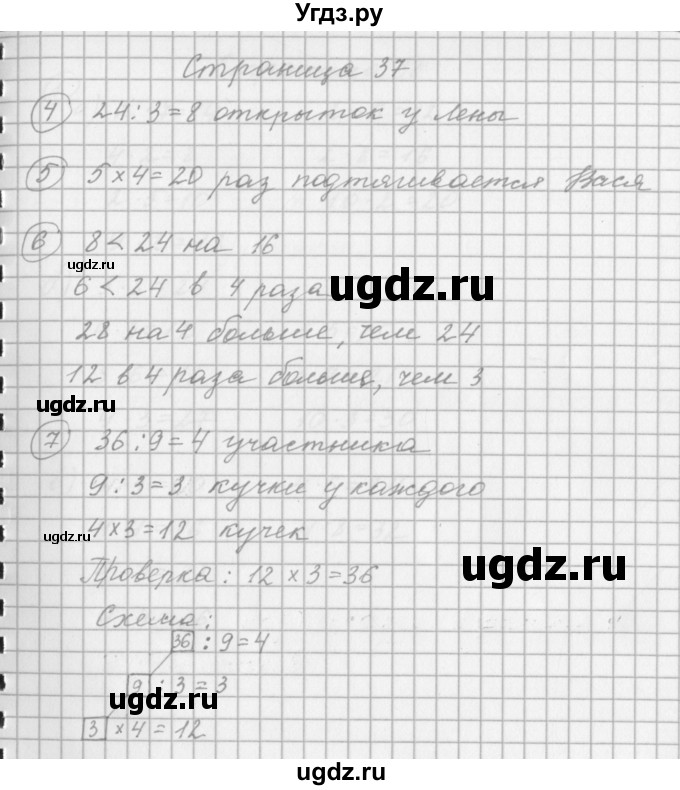 Угдз.ру
Страница 37
④ 24:3=8 открыток у Лены
⑤ 5×4=20 раз подтягивается Вася
⑥ 8<24 на 16
ugdz.ru
6<24 в 4 раза
ugdz.ru
28 на 4 больше, чем 24
12 в 4 раза больше, чем 3
ugdz.ru
⑦ 36:9=4 участника
9:3=3 кучки у каждого
4×3=12 кучек
ugdz.ru
Проверка: 12×3=36
ugdz.ru
Схема:
36 : 9=4
9 : 3=3
ugdz.ru
3 ×4=12
ugdz.ru